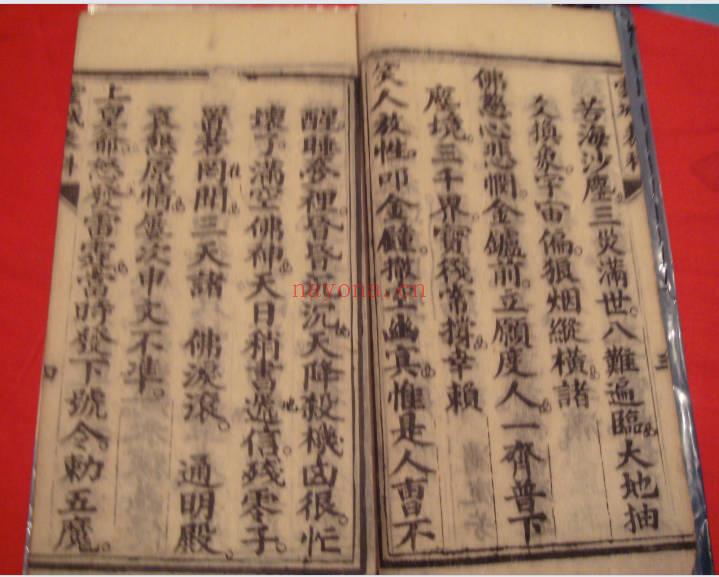 苦海沙塵三災滿世八難遍臨大地抽
爻換象宇宙偏狼烟縱橫諸
佛慈心悲憫金爐前立願度人一齊普下
塵境三千界寶筏常撐幸賴
人放性叩金鐘撒幽冥惟是人曹不
三
醒睡夢裡昏昏沉天降殺機凶很忙
壞了滿空佛仙天日稍書遞信殘零子
置若罔聞三天諸佛淚滾通明殿
哀懇原情屢次申文不準
上皇爺怒發雷霆當時發下號令勅五魔
四
nayona.cn